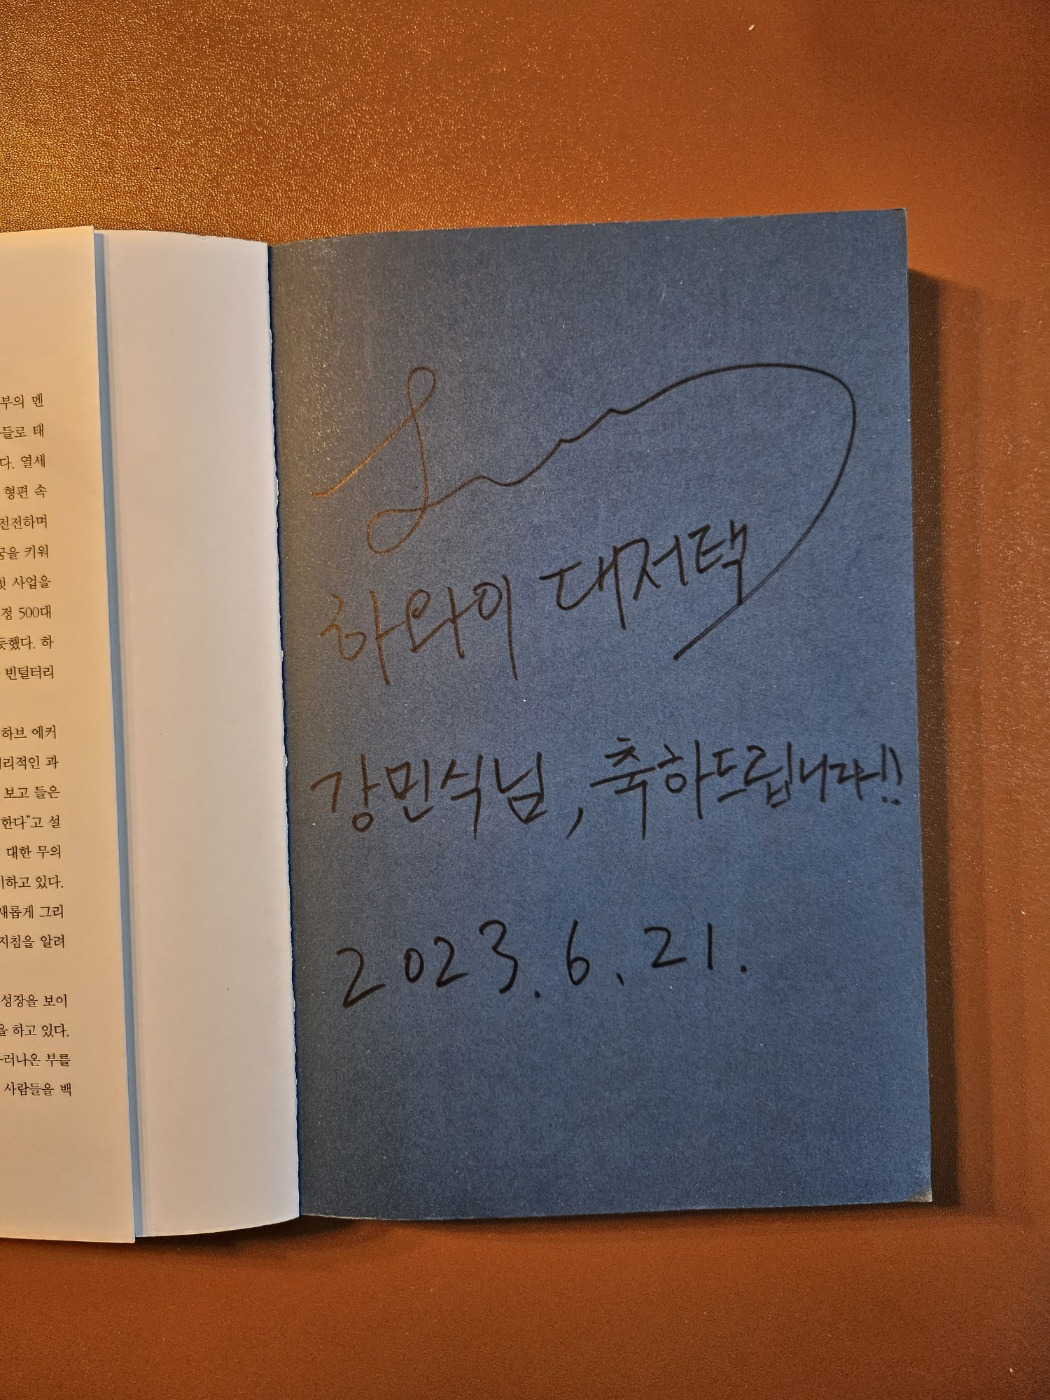 부의 멘
들로 태
다. 열세
형편 속
전전하며
꿈을 키워
사업을
정 500대
듯했다. 하
빈털터리
하브 에커
리적인 과
보고 들은
한다"고 설
대한 무의
하고 있다.
새롭게 그리
지침을 알려
성장을 보이
을 하고 있다.
러나온 부를
사람들을 백
하와이 대저택
강민식님, 축하드립니다!!
2023. 6. 21.